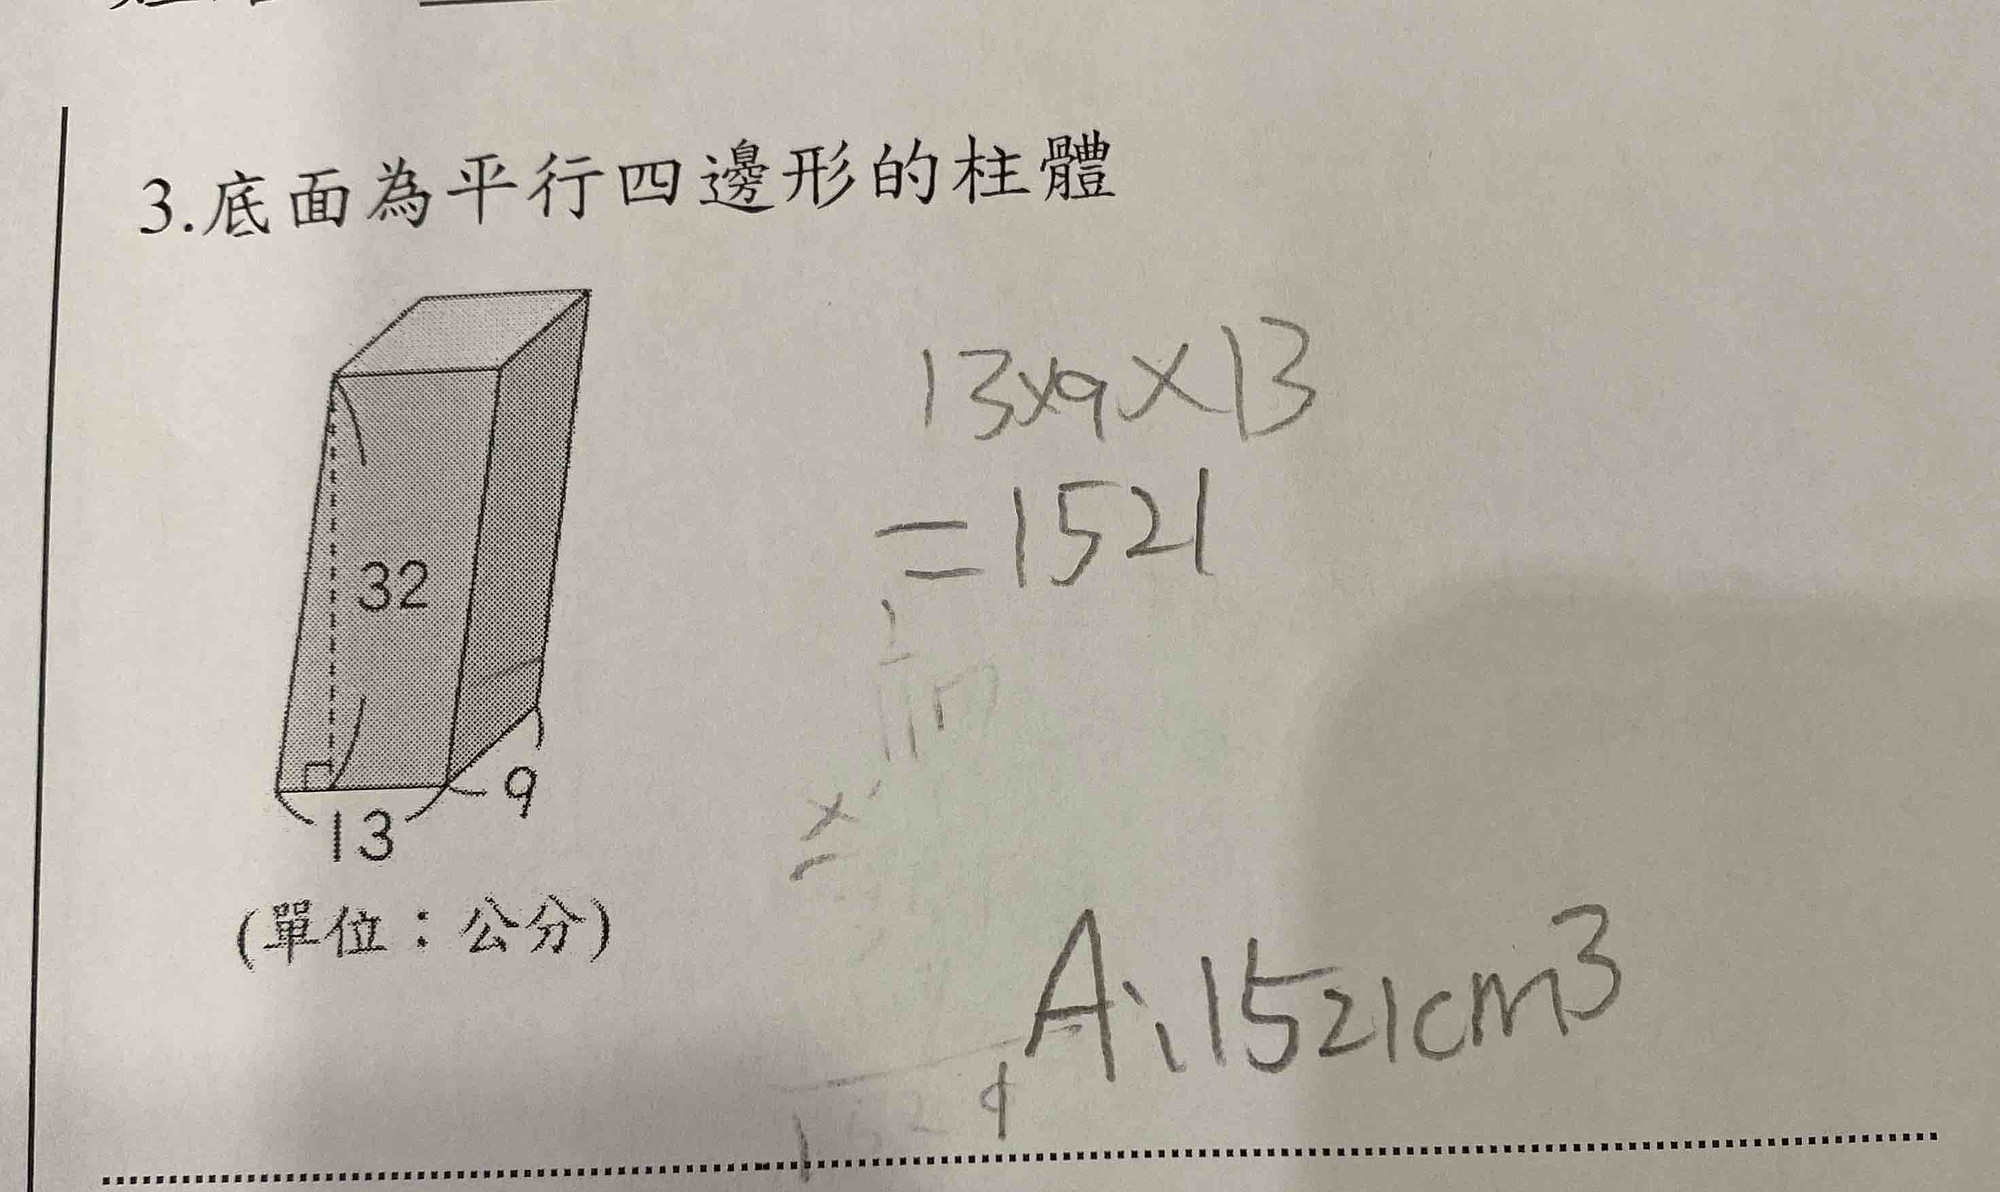 3.底面為平行四邊形的柱體
32
9
13
(單位：公分)
13x9×13
=1521
A:1521cm³